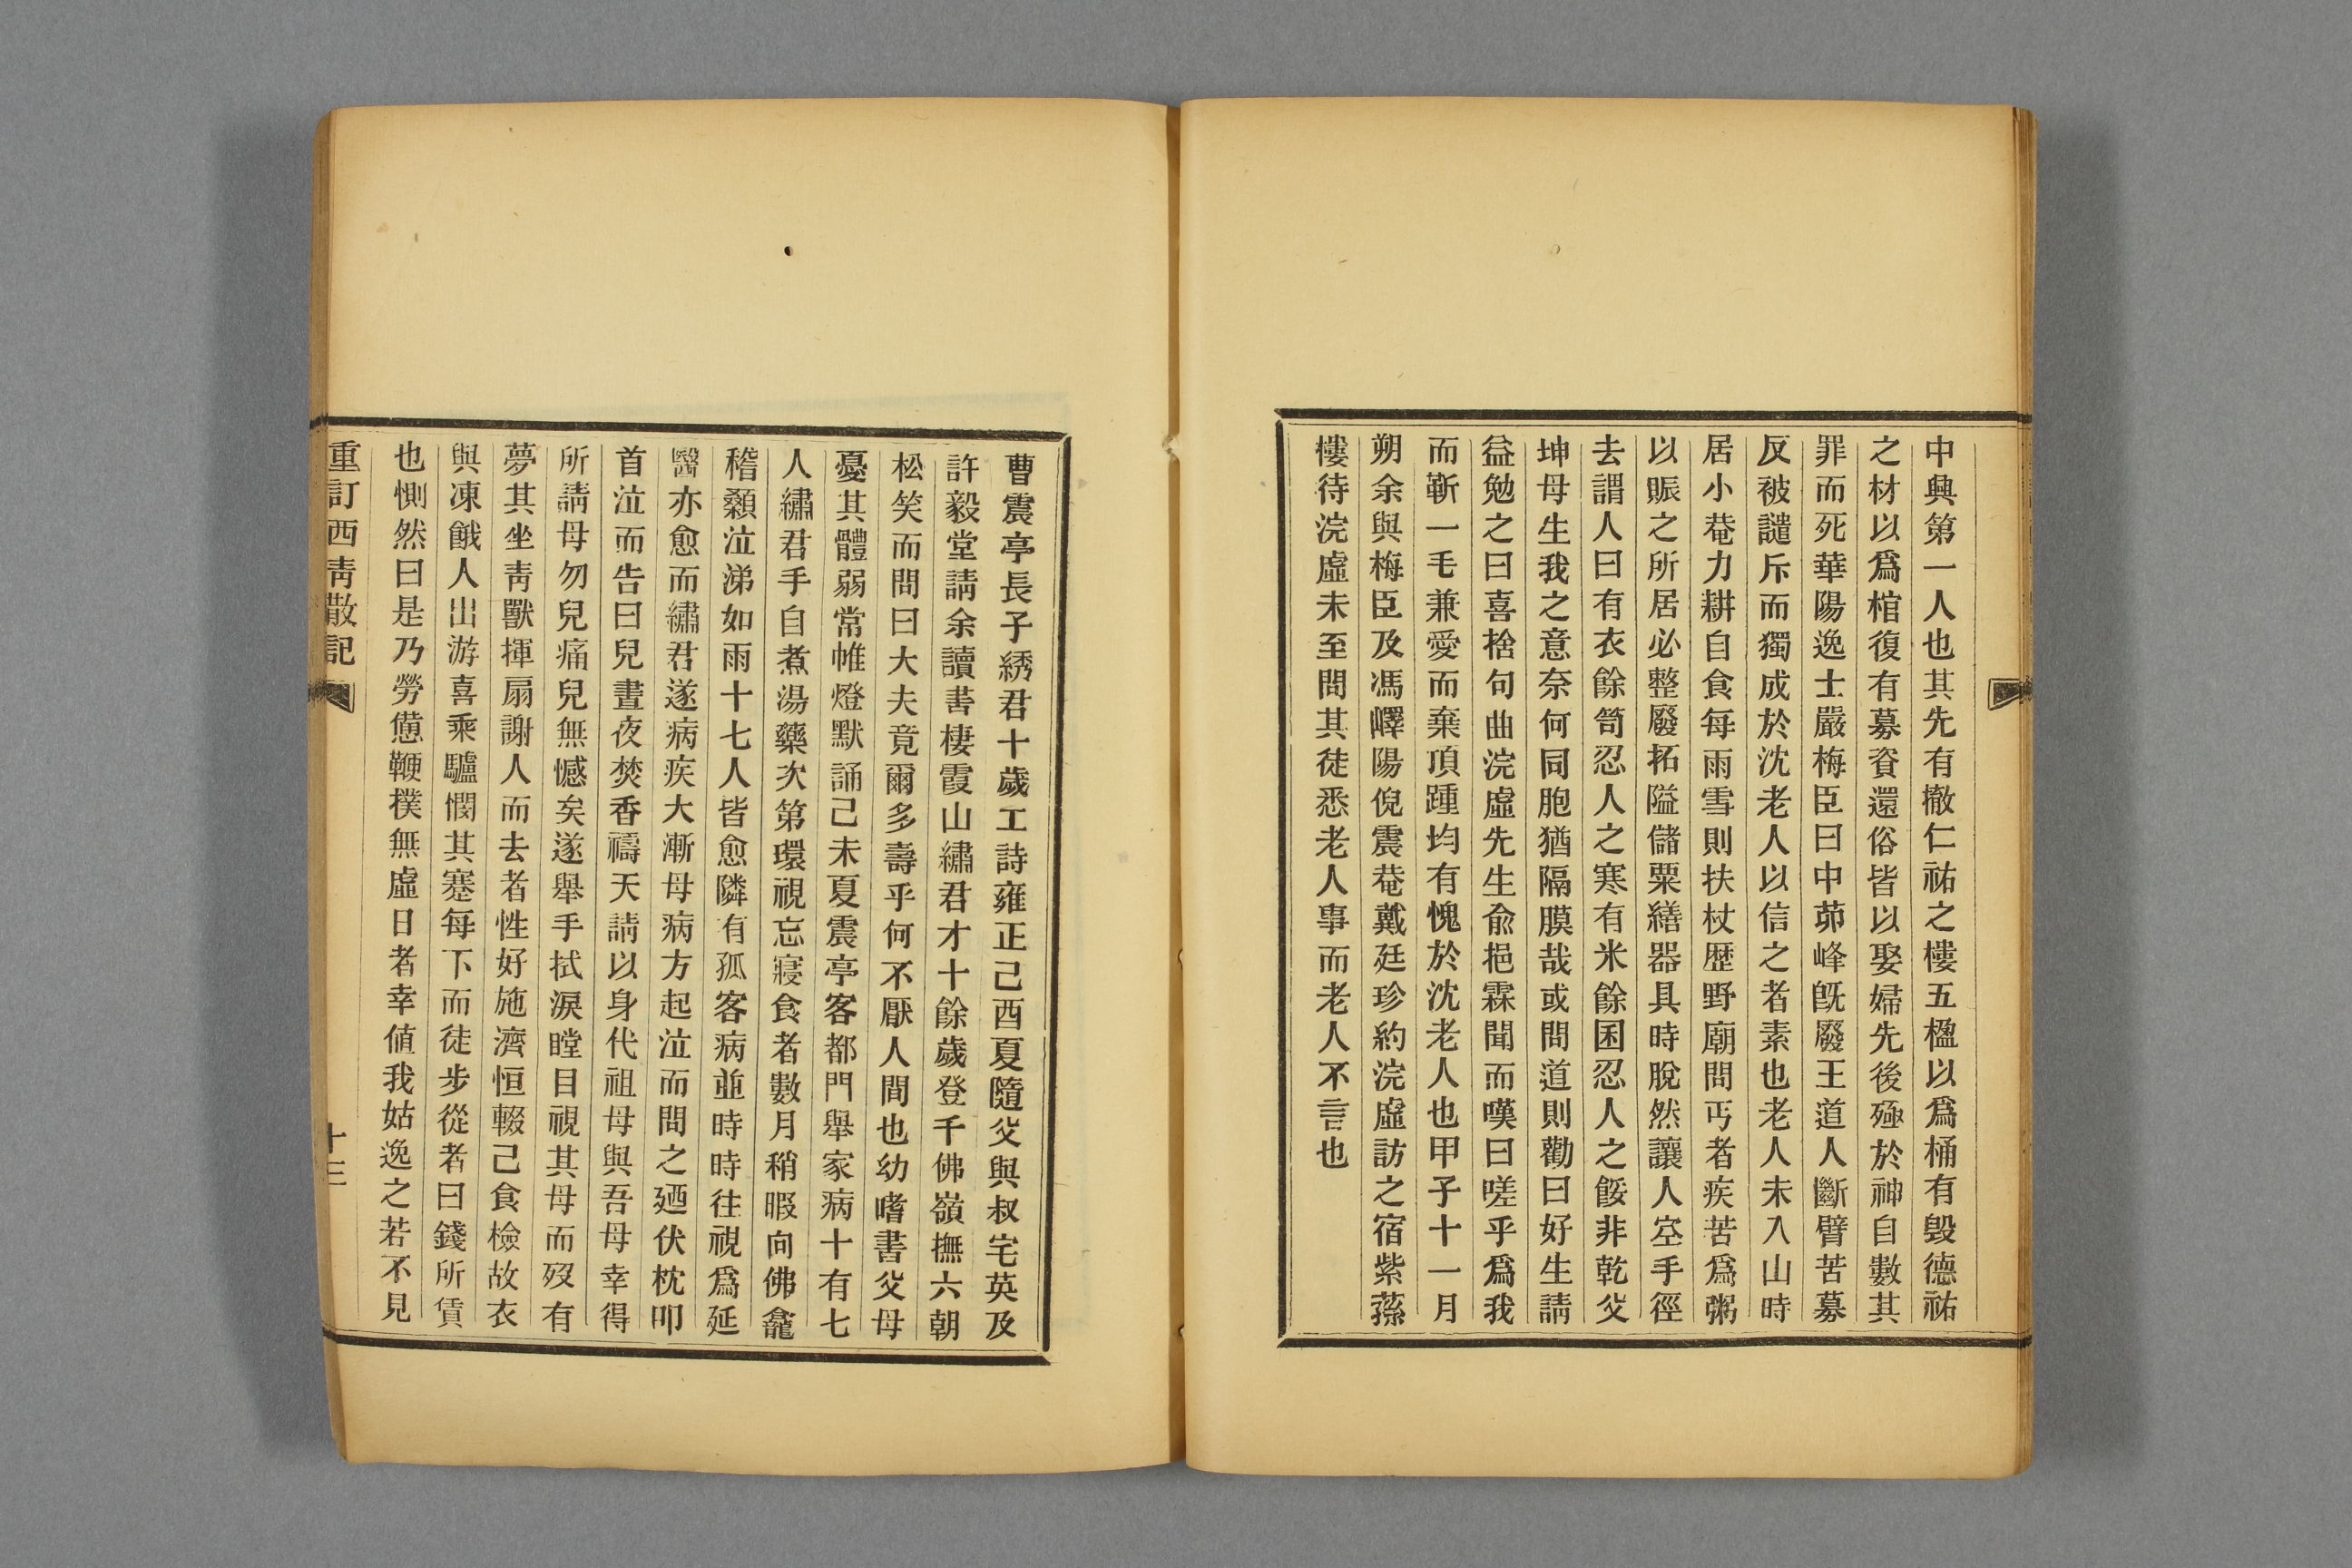 中興第一人也其先有撤仁祐之樓五楹以爲桶有毀德祐
之材以爲棺復有募資還俗皆以娶婦先後殛於神自數其
罪而死華陽逸士嚴梅臣曰中茆峰旣廢王道人斷臂苦募
反被譴斥而獨成於沈老人以信之者素也老人未入山時
居小菴力耕自食每雨雪則扶杖歷野廟問丐者疾苦爲粥
以賑之所居必整廢拓隘儲粟繕器具時脫然讓人空手徑
去謂人曰有衣餘笥忍人之寒有米餘囷忍人之餒非乾父
坤母生我之意奈何同胞猶隔膜哉或問道則勸曰好生請
益勉之曰喜捨句曲浣虛先生兪挹霖聞而嘆曰嗟乎爲我
而靳一毛兼愛而棄頂踵均有愧於沈老人也甲子十一月
朔余與梅臣及馮嶧陽倪震菴戴廷珍約浣虛訪之宿紫蓀
樓待浣虛未至問其徒悉老人事而老人不言也
曹震亭長子綉君十歲工詩雍正己酉夏隨父與叔宅英及
許毅堂請余讀書棲霞山繡君才十餘歲登千佛嶺撫六朝
松笑而問曰大夫竟爾多壽乎何不厭人間也幼嗜書父母
憂其體弱常帷燈默誦己未夏震亭客都門舉家病十有七
人繡君手自煮湯藥次第環視忘寢食者數月稍暇向佛龕
稽顙泣涕如雨十七人皆愈隣有孤客病並時時往視爲延
醫亦愈而繡君遂病疾大漸母病方起泣而問之廼伏枕叩
首泣而告曰兒晝夜焚香禱天請以身代祖母與吾母幸得
所請母勿兒痛兒無憾矣遂舉手拭淚瞠目視其母而歿有
夢其坐靑獸揮扇謝人而去者性好施濟恒輟己食檢故衣
與凍餓人出游喜乘驢憫其蹇每下而徒步從者曰錢所賃
也惻然曰是乃勞憊鞭撲無虛日者幸値我姑逸之若不見
重訂西靑散記
十三